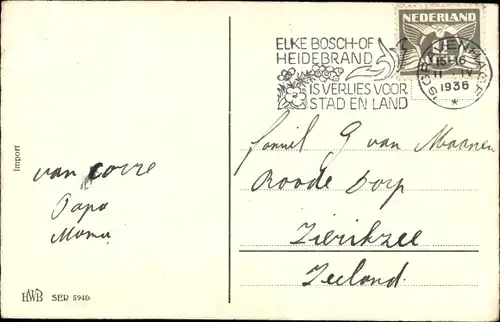 ELKE BOSCH-OF
HEIDEBRAND
IS VERLIES VOOR
STAD EN LAND
NEDERLAND
'SGRAVENHAGE
15-16
11 IV
1936
Import
van Corrie
Papa
Mama
Famiel G van Maanen
Roode Dorp
Zierikzee
Zeeland.
HWB SER 5940